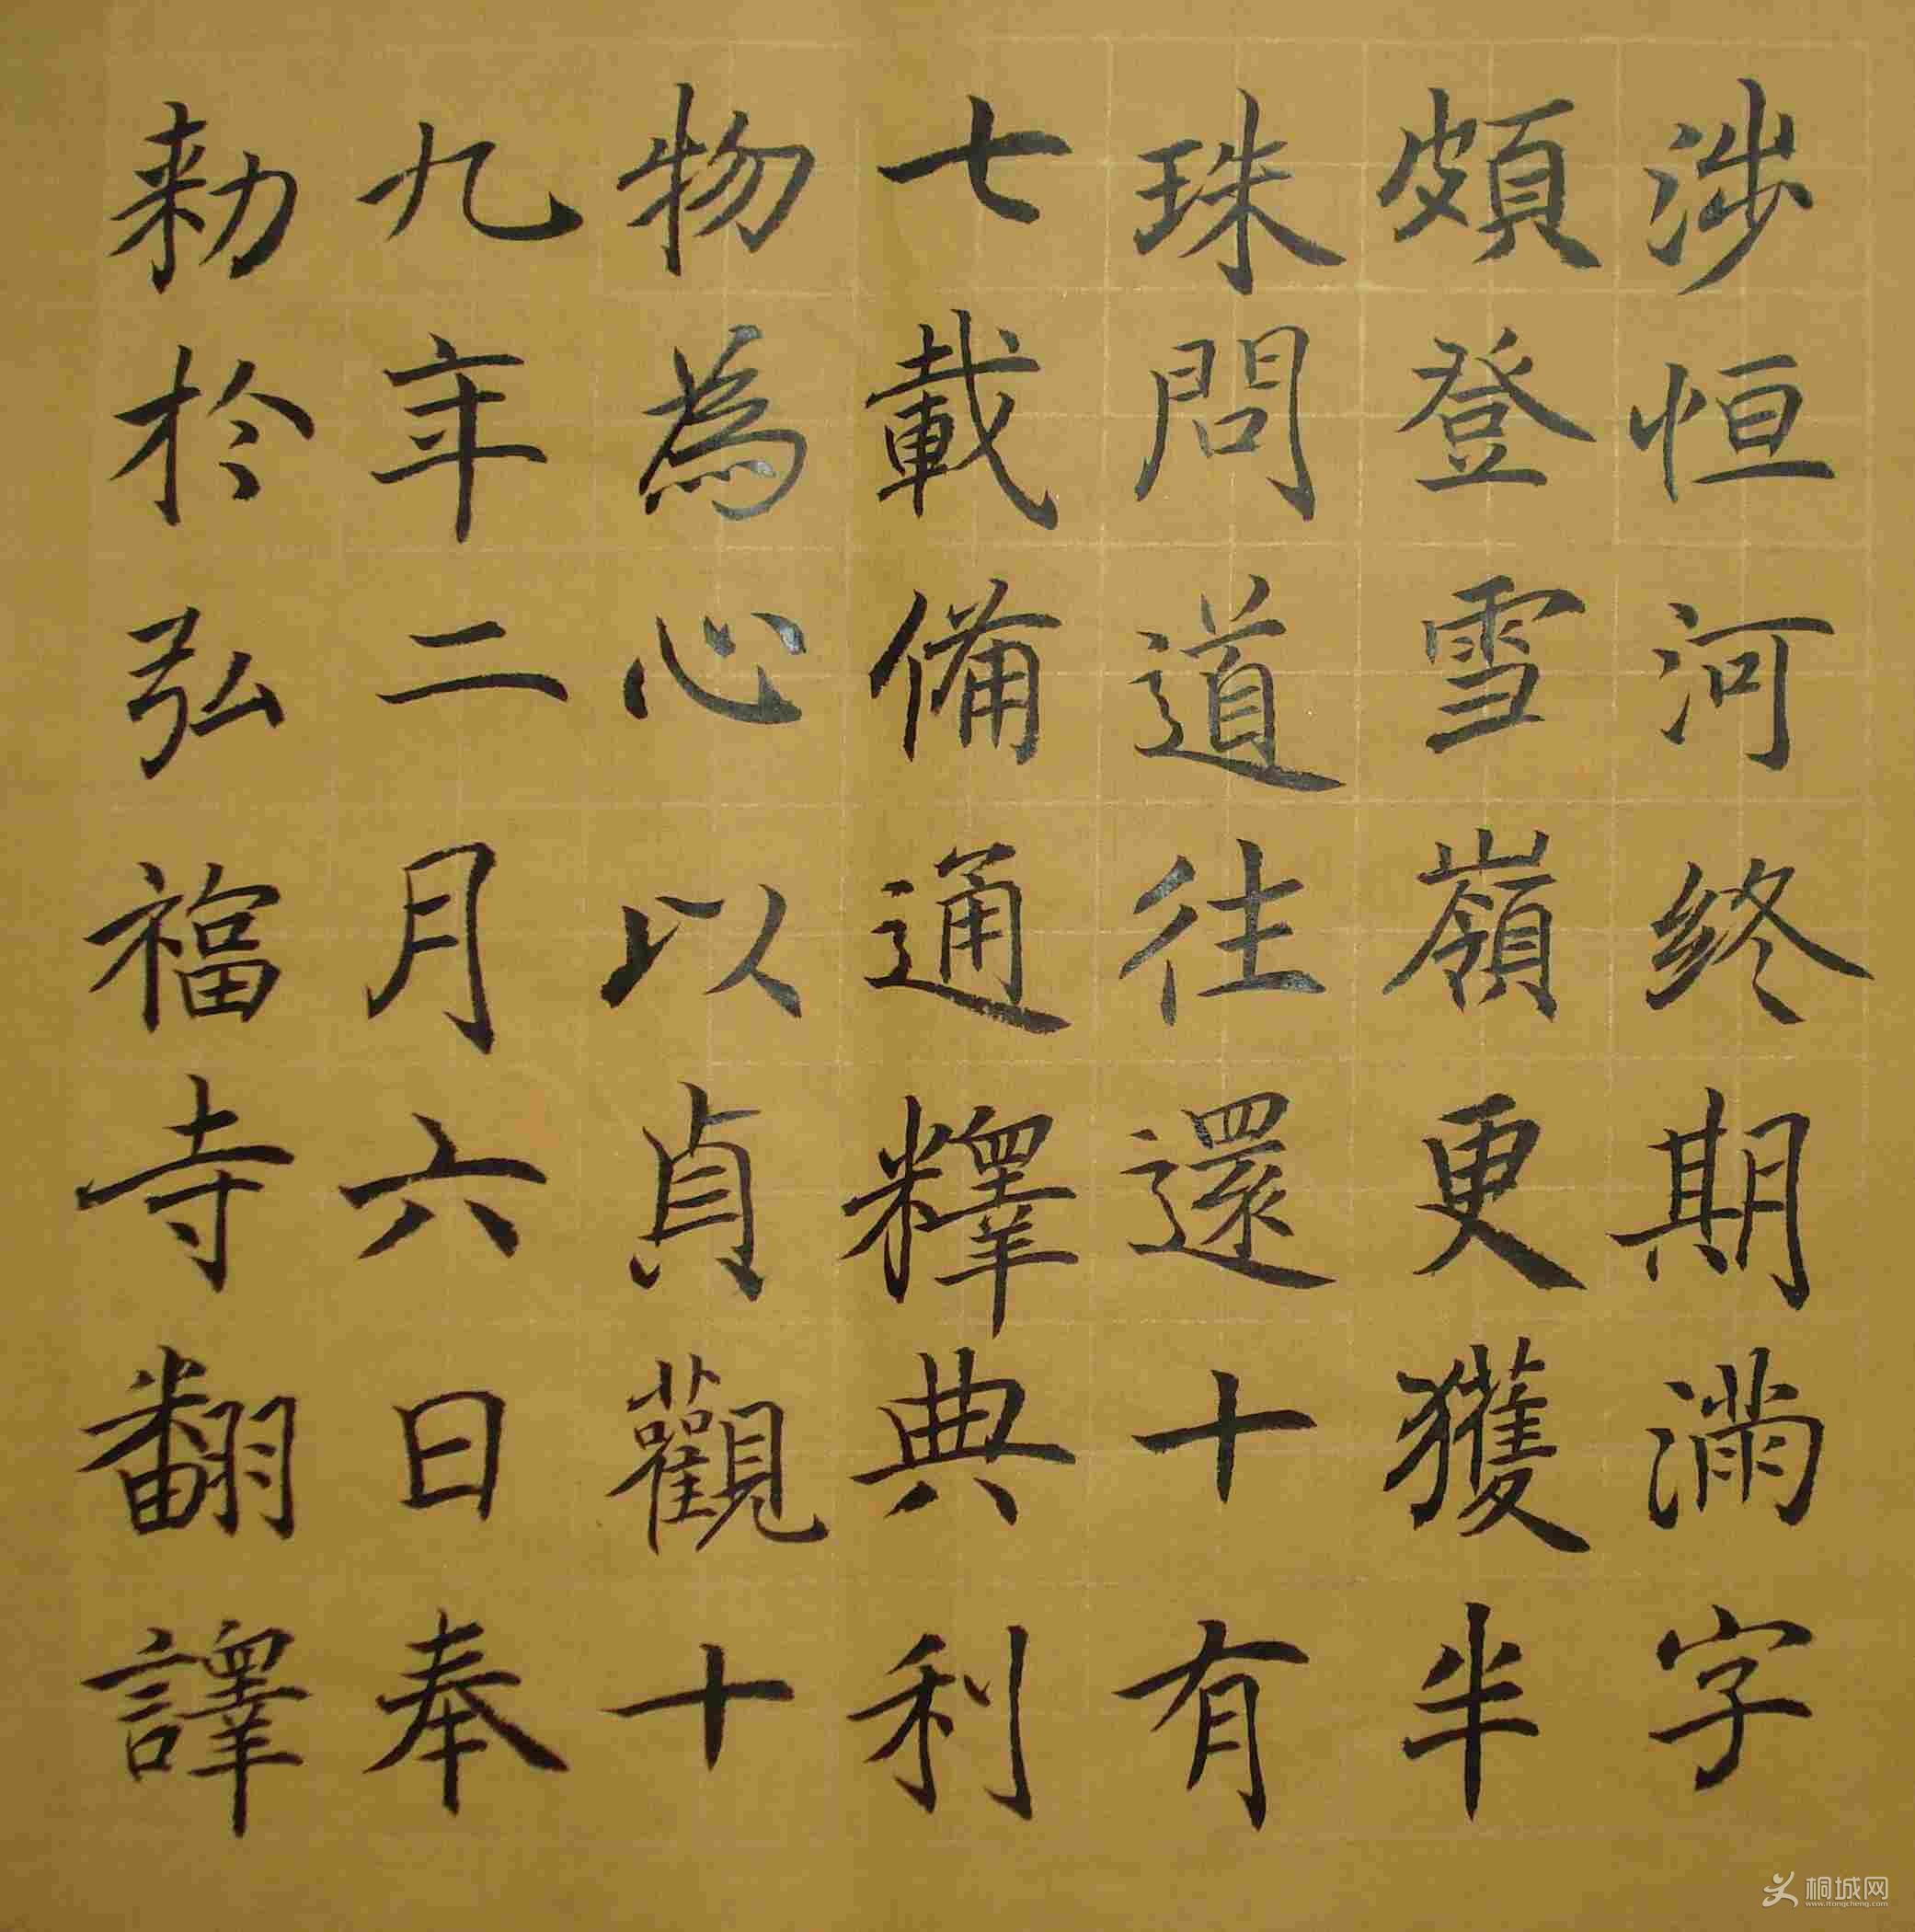 涉恒河終期滿字
頗登雪嶺更獲半
珠問道往還十有
七載備通釋典利
物為心以貞觀十
九年二月六日奉
勑於弘福寺翻譯
桐城网
www.itongcheng.com